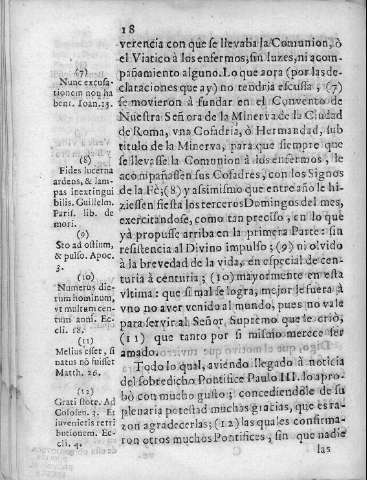 18
verencia con que se llevaba la Comunion, ò
el Viatico à los enfermos, sin luzes, ni acom-
pañamiento alguno. Lo que aora (por las de-
claraciones que ay) no tendria escusa; (7)
se movieron à fundar en el Convento de
Nuestra Señora de la Minerva de la Ciudad
de Roma, vna Cofadria, ò Hermandad, sub
titulo de la Minerva, para que siempre que
se llevasse la Comunion à los enfermos, le
acompañassen sus Cofadres, con los Signos
de la Fè; (8) y assimismo que entre año le hi-
ziessen fiesta los terceros Domingos del mes,
exercitandose, como tan preciso, en lo que
yà propusse arriba en la primera Parte: sin
resistencia al Divino impulso; (9) ni olvido
à la brevedad de la vida, en especial de cen-
turia à centuria; (10) mayormente en esta
vltima: que si mal se logra, mejor le fuera à
vno no aver venido al mundo, pues no vale
para servir al Señor, Supremo que le criò,
(11) que tanto por si mismo merece ser
amado.
Todo lo qual, aviendo llegado à noticia
del sobredicho Pontifice Paulo III. lo apro-
bò con mucho gusto; concediendole de su
plenaria potestad muchas gracias, que es ra-
zon agradecerlas; (12) las quales confirma-
ron otros muchos Pontifices, sin que nadie
las
(7)
Nunc excusa-
tionem non ha
bent. Ioan. 15.
(8)
Fides lucerna
ardens, & lam-
pas inextingui
bilis. Guillelm.
Paris. lib. de
mori.
(9)
Sto ad ostium,
& pulso. Apoc.
3.
(10)
Numerus die-
rum hominum,
vt multum cen-
tum anni. Ec-
cli. 18.
(11)
Melius esset, si
natus nõ fuisset
Matth. 26.
(12)
Grati estote. Ad
Colosen. 3. Et
iuvenietis retri
butionem. Ec-
cli. 4.